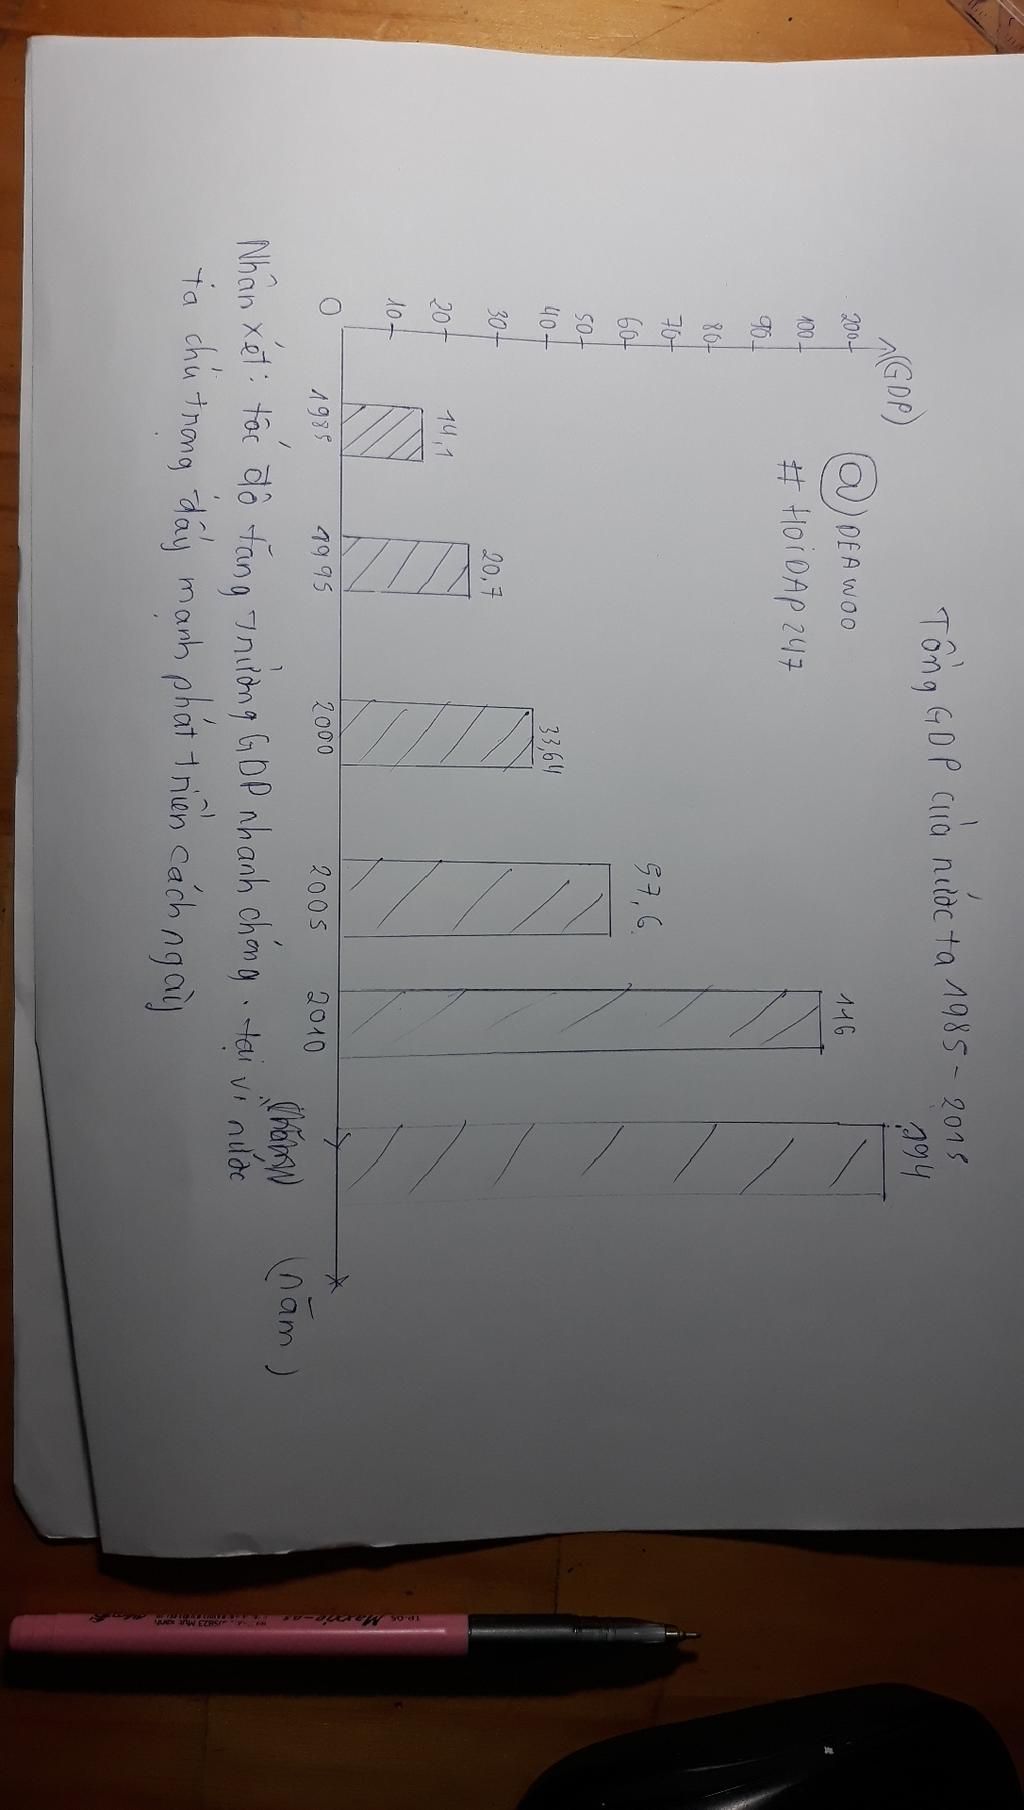 Tổng GDP của nước ta 1985 - 2015
(GDP)
@ DEAWOO
# HOIDAP247
200
100
90
80
70
60
50
40
30
20
10
0
14,1
20,7
33,64
57,6
116
194
1985
1995
2000
2005
2010
(năm)
Nhận xét: tốc độ tăng trưởng GDP nhanh chóng. tại vì nước
ta chú trọng đẩy mạnh phát triển cách ngày
Maxxie-os